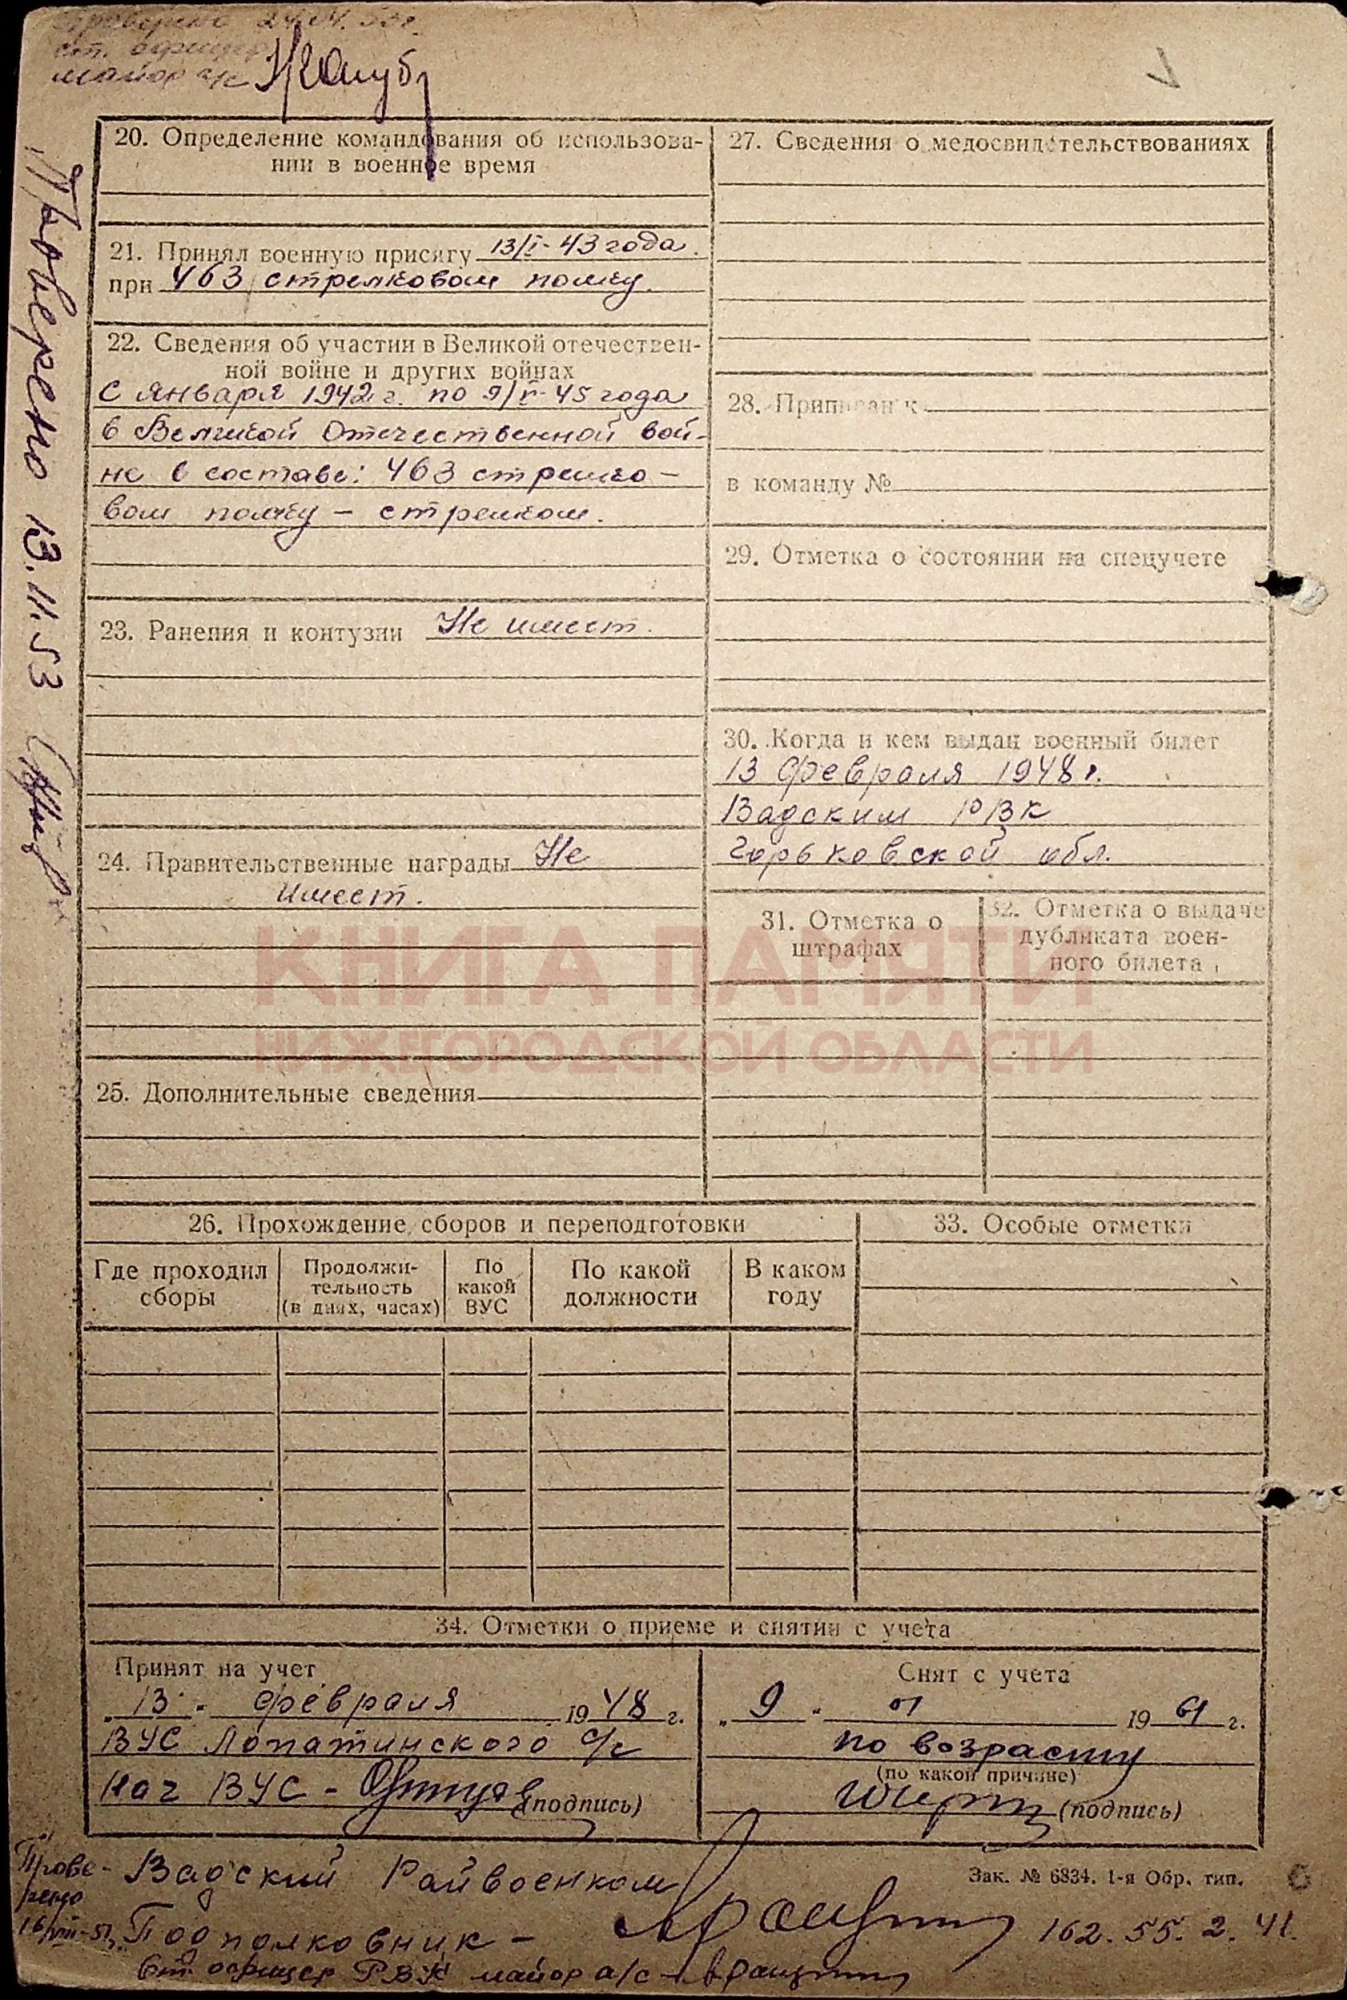 Проверено 24.04.53г.
ст. офицер
майор а/с
20. Определение командования об использова-
нии в военное время
21. Принял военную присягу 13/I-43 года.
при 463 стрелковом полку.
22. Сведения об участии в Великой отечествен-
ной войне и других войнах
С января 1942 г. по 9/V-45 года
в Великой Отечественной вой-
не в составе: 463 стрелко-
вом полку - стрелком.
23. Ранения и контузии Не имеет.
24. Правительственные награды Не
имеет.
25. Дополнительные сведения
27. Сведения о медосвидетельствованиях
28. Приписан к
в команду №
29. Отметка о состоянии на спецучете
30. Когда и кем выдан военный билет
13 февраля 1948 г.
Вадским РВК
Горьковской обл.
31. Отметка о
штрафах
32. Отметка о выдаче
дубликата воен-
ного билета
КНИГА ПАМЯТИ
НИЖЕГОРОДСКОЙ ОБЛАСТИ
26. Прохождение сборов и переподготовки
Где проходил
сборы
Продолжи-
тельность
(в днях, часах)
По
какой
ВУС
По какой
должности
В каком
году
33. Особые отметки
34. Отметки о приеме и снятии с учета
Принят на учет
„13" февраля 1948 г.
ВУС Лопатинского с/с
Нач ВУС - (подпись)
Снят с учета
„9" 01 1961 г.
по возрасту
(по какой причине)
(подпись)
Зак. № 6834. 1-я Обр. тип.
Вадский Райвоенком
Подполковник -
162. 55. 2. 41.
Ст. офицер РВК майор а/с -
Прове-
рено
16/VIII-51г.
Проверено 13.11.53